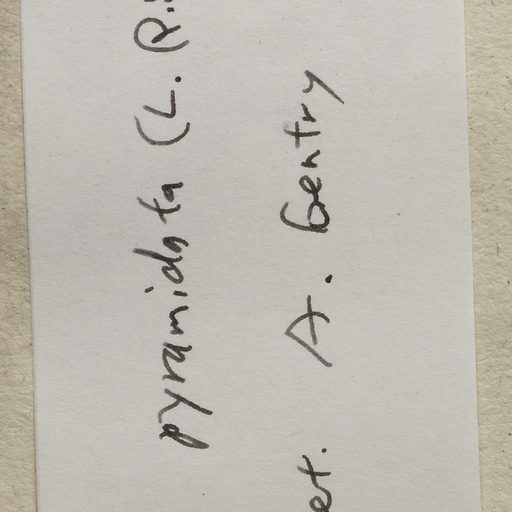 pyramidata (L. R.
et. A. Gentry